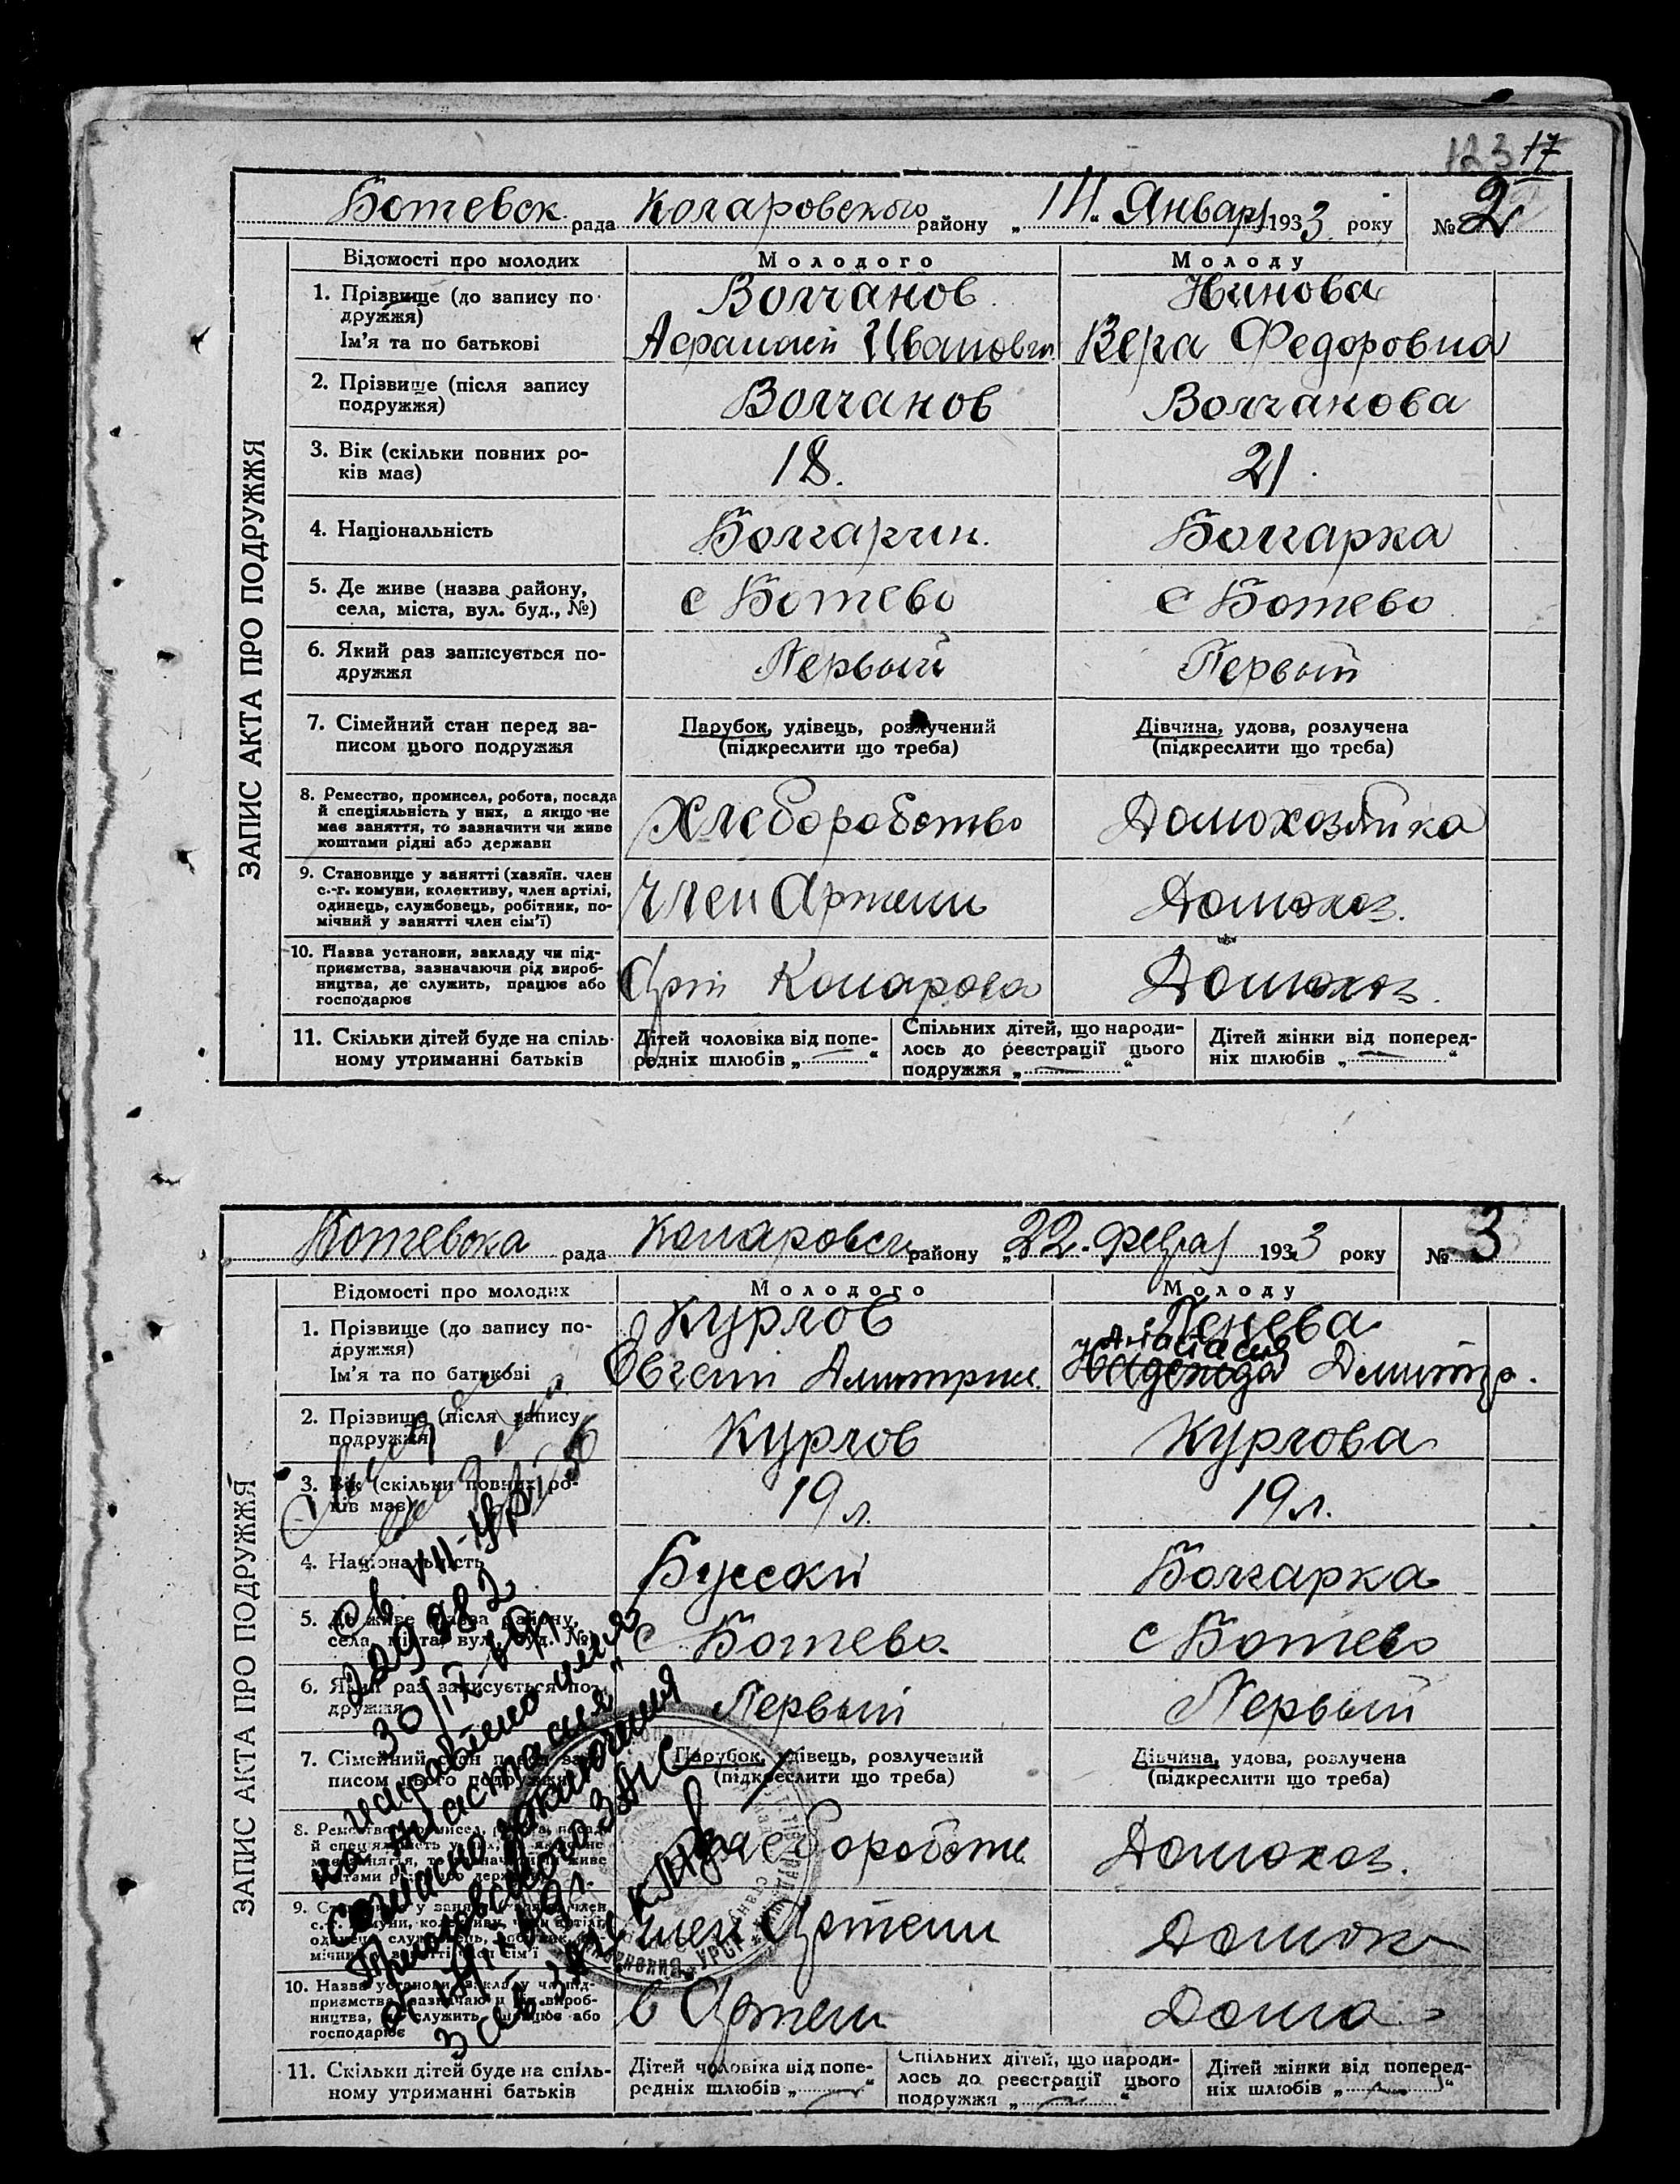 123 17
Ботевск. рада Коларовского району „14. Январ 1933 року № 2
ЗАПИС АКТА ПРО ПОДРУЖЖЯ
Відомості про молодих Молодого Молоду
1. Прізвище (до запису по- Волчанов Нинова
дружжя)
Ім'я та по батькові Иванович Вера Федоровна
2. Прізвище (після запису
подружжя) Волчанов Волчанова
3. Вік (скільки повних ро- 18. 21.
ків має)
4. Національність Болгарин. Болгарка
5. Де живе (назва району, с Ботево с Ботево
села, міста, вул. буд., №)
6. Який раз записується по- Первый Первый
дружжя
7. Сімейний стан перед за- Парубок, удівець, розлучений Дівчина, удова, розлучена
писом цього подружжя (підкреслити що треба) (підкреслити що треба)
8. Ремество, промисел, робота, посада
й спеціяльність у них, а якщо не Хлеборобство Домохозяйка
має заняття, то зазначити чи живе
коштами рідні або держави
9. Становище у занятті (хазяїн. член
с.-г. комуни, колективу, член артілі, Член Артели Домохоз.
одинець, службовець, робітник, по-
мічний у занятті член сім'ї)
10. Назва установи, закладу чи під-
приємства, зазначаючи рід вироб- Арт Коларова Домохоз.
ництва, де служить, працює або
господарює
11. Скільки дітей буде на спіль- Дітей чоловіка від попе- Спільних дітей, що народи- Дітей жінки від поперед-
ному утриманні батьків редніх шлюбів „—“ лось до реєстрації цього ніх шлюбів „—“
подружжя „—“
Ботевска рада Коларовск району „22. Феврал 1933 року № 3
ЗАПИС АКТА ПРО ПОДРУЖЖЯ
Відомості про молодих Молодого Молоду
1. Прізвище (до запису по- Курлов Пенева
дружжя) Анастасия
Ім'я та по батькові Евгений Дмитрие. Надежда Дмитр.
2. Прізвище (після запису
подружжя) Курлов Курлова
3. Вік (скільки повних ро- 19 л. 19 л.
ків має)
4. Національність Русский Болгарка
5. Де живе (назва району, с Ботево с Ботево
села, міста, вул. буд., №)
6. Який раз записується по- Первый Первый
дружжя
7. Сімейний стан перед за- Парубок, удівець, розлучений Дівчина, удова, розлучена
писом цього подружжя (підкреслити що треба) (підкреслити що треба)
8. Ремество, промисел, робота, посада
й спеціяльність у них, а якщо не Хлебороботв Домохоз.
має заняття, то зазначити чи живе
коштами рідні або держави
9. Становище у занятті (хазяїн. член
с.-г. комуни, колективу, член артілі, Член Артели Домох
одинець, службовець, робітник, по-
мічний у занятті член сім'ї
10. Назва установи, закладу чи під-
приємства, зазначаючи рід вироб- в Артели Дома
ництва, де служить, працює або
господарює
11. Скільки дітей буде на спіль- Дітей чоловіка від попе- Спільних дітей, що народи- Дітей жінки від поперед-
ному утриманні батьків редніх шлюбів „—“ лось до реєстрації цього ніх шлюбів „—“
подружжя „—“
св. VIII-ЖС
исправлено имя
на „Анастасия“
согласно заключения
Приазовского ЗАГС
УРСР